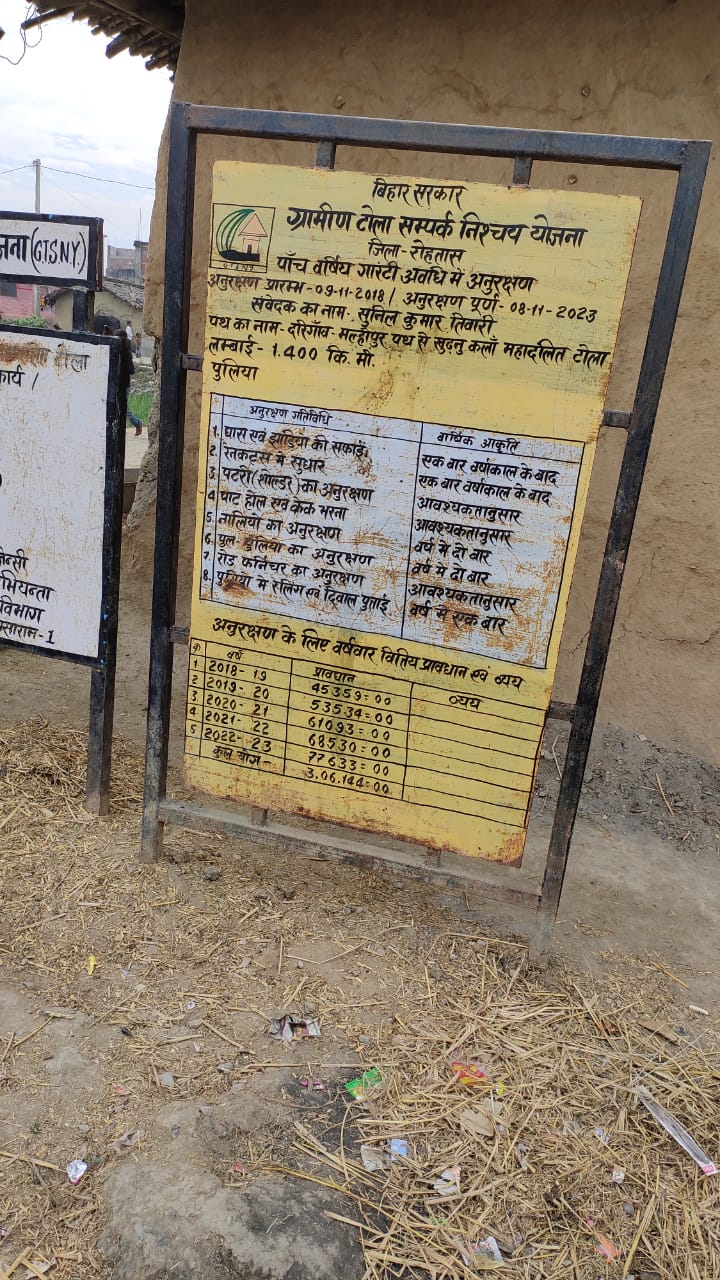 बिहार सरकार
ग्रामीण टोला सम्पर्क निश्चय योजना
जिला-रोहतास
G.T.S.N.Y.
पाँच वर्षिय गारंटी अवधि मे अनुरक्षण
अनुरक्षण प्रारम्भ -09-11-2018 / अनुरक्षण पूर्ण- 08-11-2023
संवेदक का नाम- सुनिल कुमार तिवारी
पथ का नाम-दरिगाँव-मल्हीपुर पथ से सुदनु कलाँ महादलित टोला
लम्बाई- 1.400 कि. मी.
पुलिया
अनुरक्षण गतिविधि वार्षिक आकृति
1. घास एवं झाड़ियों की सफाई एक बार वर्षाकाल के बाद
2. रेनकट्स मे सुधार एक बार वर्षाकाल के बाद
3. पटरी (शोल्डर) का अनुरक्षण आवश्यकतानुसार
4. पाट होल एवं क्रेक भरना आवश्यकतानुसार
5. नालियों का अनुरक्षण वर्ष मे दो बार
6. पुल-पुलिया का अनुरक्षण वर्ष मे दो बार
7. रोड फर्निचर का अनुरक्षण आवश्यकतानुसार
8. पुलिया मे रेलिंग एवं दिवाल पुताई वर्ष मे एक बार
अनुरक्षण के लिए वर्षवार वित्तिय प्रावधान एवं व्यय
क्र वर्ष प्रावधान व्यय
1 2018-19 45359=00
2 2019-20 53534=00
3 2020-21 61093=00
4 2021-22 68530=00
5 2022-23 77633=00
कुल योग- 3.06.144=00
जना (G.T.S.N.Y.)
टोला
कार्य /
जेन्सी
भियन्ता
विभाग
सासाराम-1